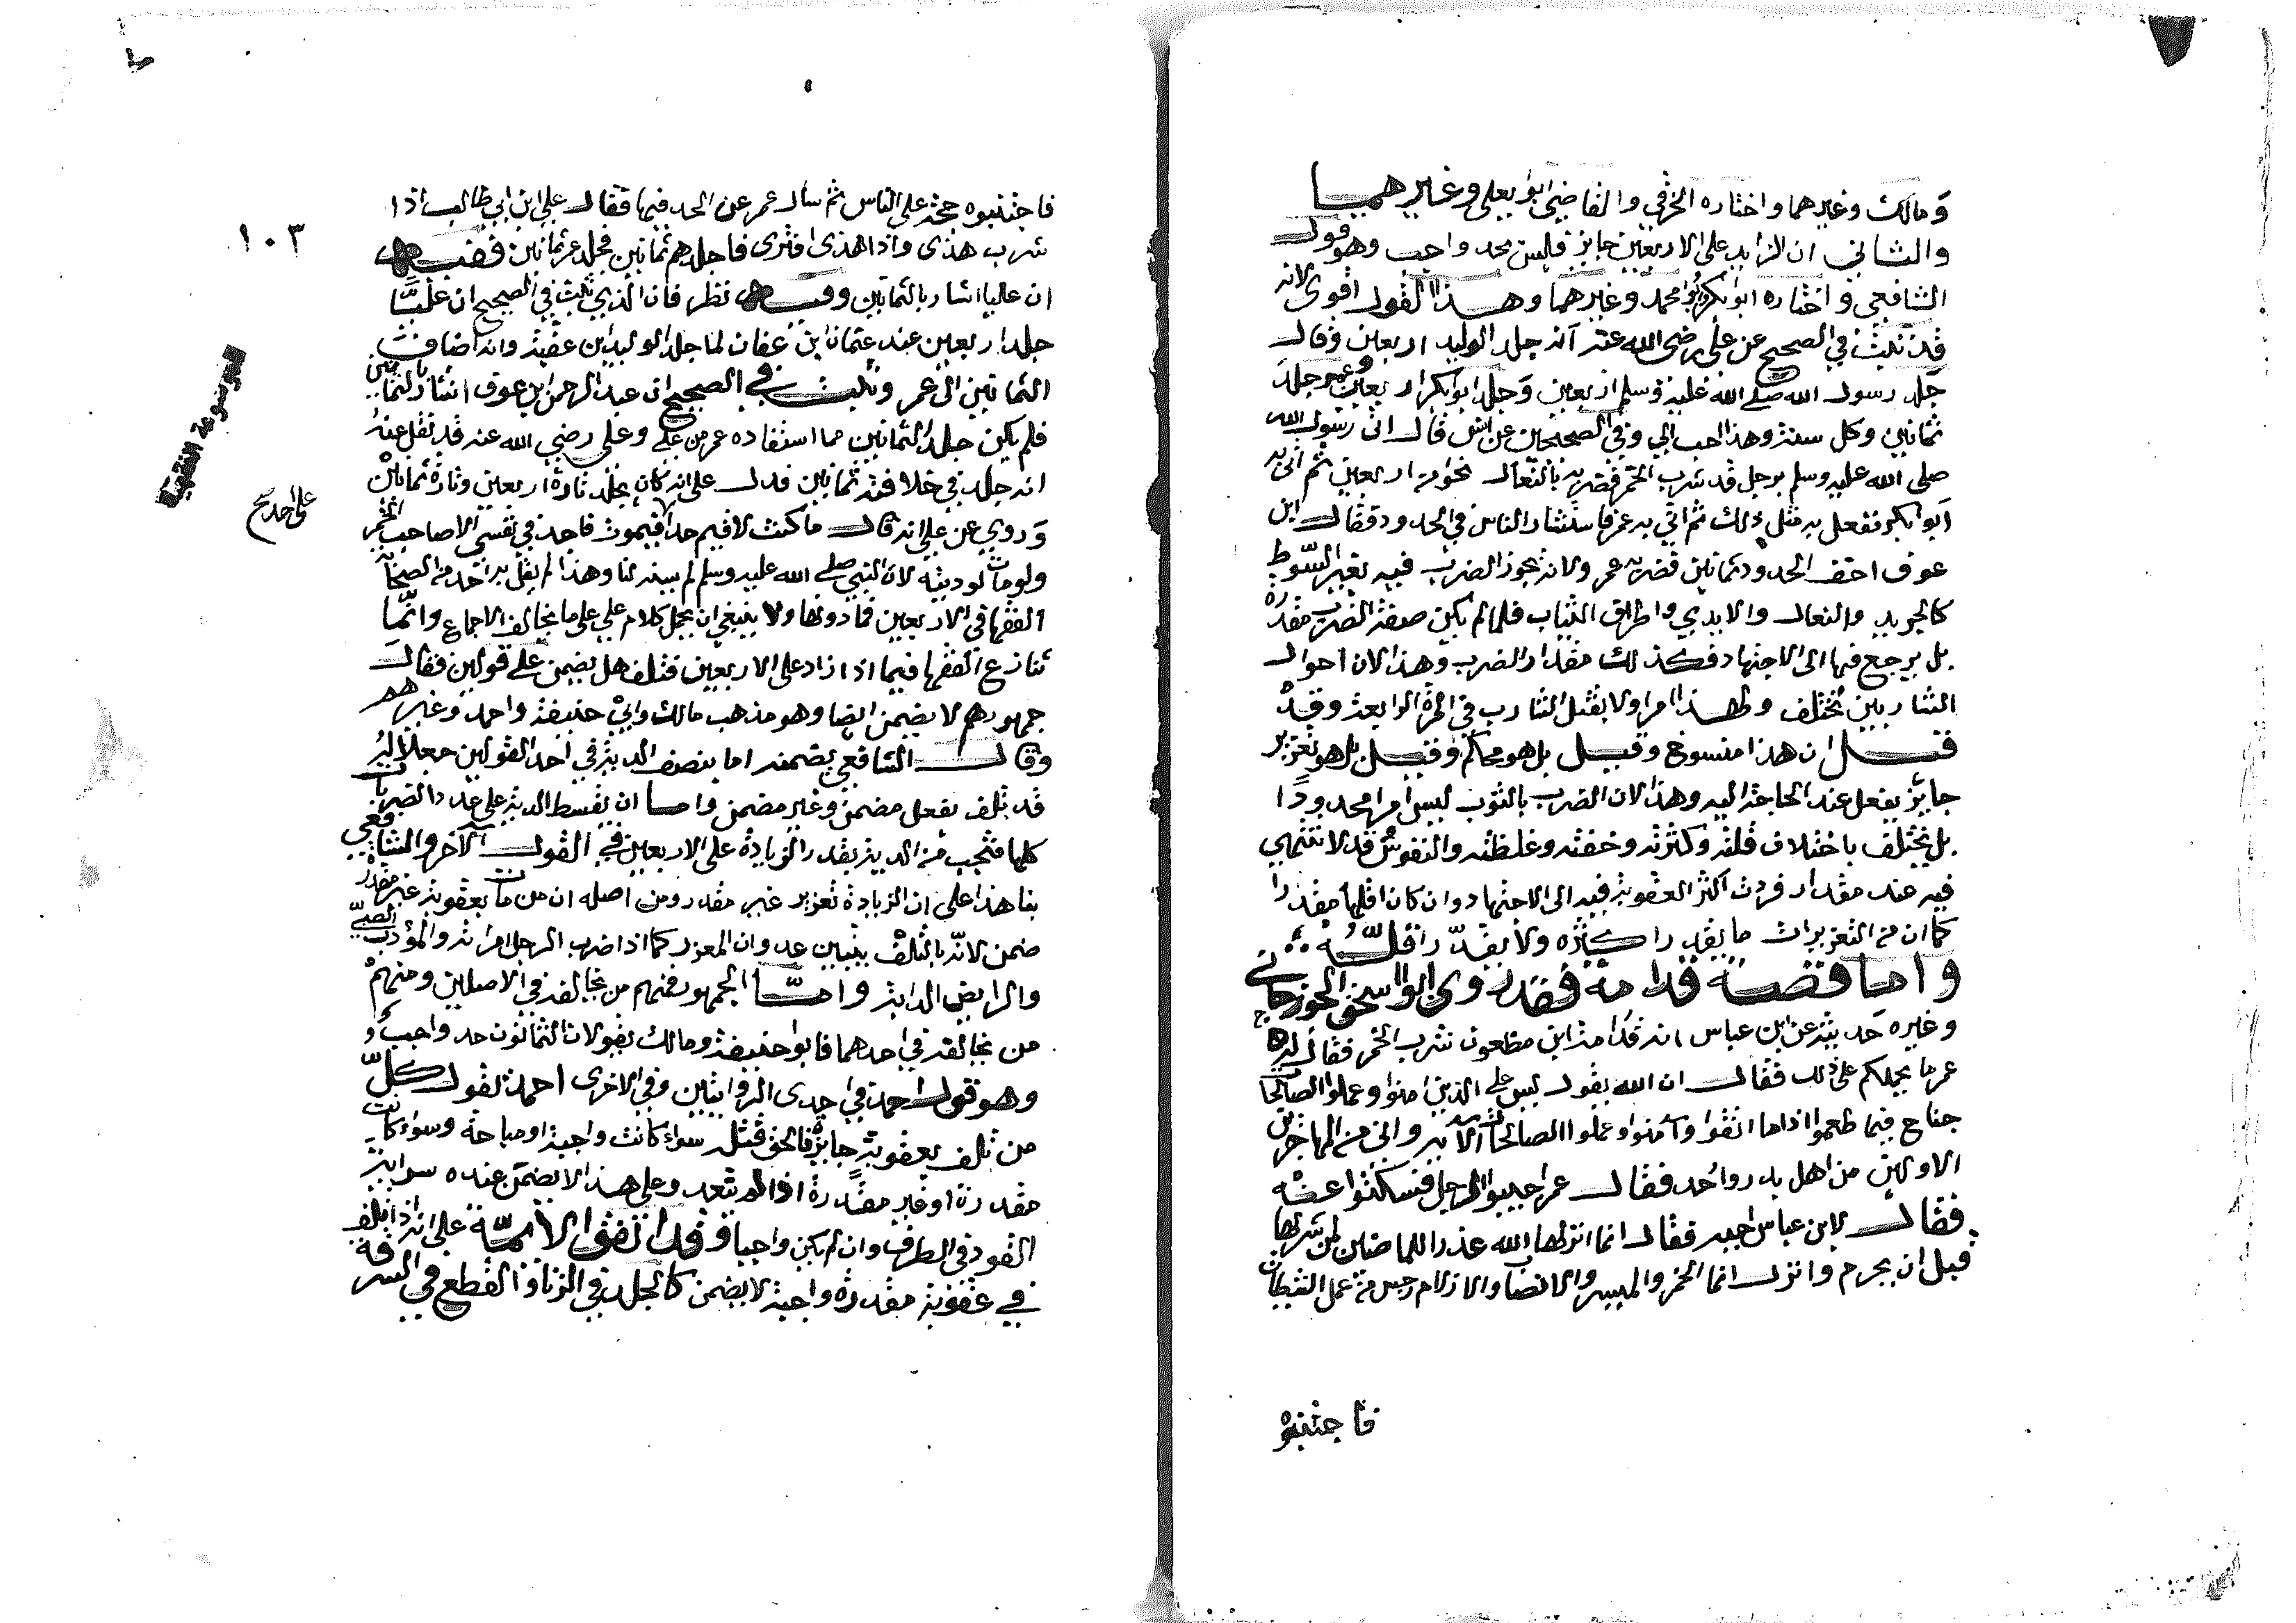 ومالك وغيرهما واختاره الخرقي والقاضي ابو يعلى وغيرهما
والثاني ان الزايد على الاربعين جايز فليس بحد واجب وهو قول
الشافعي واختاره ابو بكر وابو محمد وغيرهما وهذا القول اقوى لانه
قد ثبت في الصحيح عن على رضى الله عنه انه جلد الوليد اربعين وقال
جلد رسول الله صلى الله عليه وسلم اربعين وجلد ابو بكر اربعين وعمر جلد
ثمانين وكل سنة وهذا احب الي وفي الصحيحين عن انس قال اتى رسول الله
صلى الله عليه وسلم برجل قد شرب الخمر فضربه بالنعال نحوا من اربعين ثم اتى به
ابو بكر ففعل به مثل ذلك ثم اتي به عمر فاستشار الناس في الحدود فقال ابن
عوف اخف الحدود ثمانين فضربه عمر ولانه يجوز الضرب فيه بغير السوط
كالجريد والنعال والايدي واطراف الثياب فلما لم يكن صفة الضرب مقدرة
بل يرجع فيها الى الاجتهاد فكذلك مقدار الضرب وهذا لان احوال
الشاربين تختلف ولهذا امر اولا بقتل الشارب في المرة الرابعة وقد
قيل ان هذا منسوخ وقيل بل هو محكم وقيل بل هو تعزير
جايز يفعل عند الحاجة اليه وهذا لان الضرب بالثوب ليس امرا محدودا
بل يختلف باختلاف قلته وكثرته وخفته وغلظته والنفوس قد لا تنتهي
فيه عند مقدار فردت اكثر العقوبة فيه الى الاجتهاد وان كان اقلها مقدرا
كما ان من التعزيرات ما يقدر اكثره ولا يقدر اقله
واما قصة قدامة فقد روى ابو اسحق الجوزجاني
وغيره حديثه عن ابن عباس ان قدامة ابن مظعون شرب الخمر فقال له
عمر ما يحملكم على ذلك فقال ان الله يقول ليس على الذين امنوا وعملوا الصالحات
جناح فيما طعموا اذا ما اتقوا وآمنوا وعملوا الصالحات الآية وانى من المهاجرين
الاولين من اهل بدر واحد فقال عمر اجيبوا الرجل فسكتوا عنه
فقال لابن عباس اجبه فقال انما انزلها الله عذرا للماضين لمن شربها
قبل ان يحرم وانزل انما الخمر والميسر والانصاب والازلام رجس من عمل الشيطان
فاجتنبوه
فاجتنبوه حجة على الناس ثم سال عمر عن الحد فيها فقال علي ابن ابي طالب اذا
شرب هذى واذا هذى افترى فاجلدهم ثمانين فجلد عمر ثمانين ففيه
ان عليا اشار بالثمانين وفيه نظر فان الذي ثبت في الصحيح ان عليا
جلد اربعين عند عثمان ابن عفان لما جلد الوليد ابن عقبة وانه اضاف
الثمانين الى عمر وثبت في الصحيح ان عبد الرحمن ابن عوف اشار بالثمانين
فلم يكن جلد الثمانين مما استفاده عمر من علي وعلي رضي الله عنه قد نقل عنه
انه جلد في خلافته ثمانين فدل على انه كان يجلد تارة اربعين وتارة ثمانين
وروي عن علي انه قال ما كنت لاقيم حدا فيموت فاجد في نفسي الا صاحب الخمر
ولو مات لوديته لان النبي صلى الله عليه وسلم لم يسنه لنا وهذا لم يقل به احد من الصحابة
الفقها في الاربعين فما دونها ولا ينبغي ان يحمل كلام علي على ما يخالف الاجماع وانما
تنازع الفقها فيما اذا زاد على الاربعين فتلف هل يضمن على قولين فقال
جمهورهم لا يضمن ايضا وهو مذهب مالك وابي حنيفة واحمد وغيرهم
وقال الشافعي يضمنه اما بنصف الدية في احد القولين جعلا له
قد تلف بفعل مضمن وغير مضمن واما ان يقسط الدية على عدد الضربات
كلها فتجب من الدية بقدر الزيادة على الاربعين في القول الآخر والشافعي
بنا هذا على ان الزيادة تعزير غير مقدر ومن اصله ان من مات بعقوبة غير مقدرة
ضمن لانه بالتلف يتبين عدوان المعزر كما اذا ضرب الرجل امراته والمؤدب الصبي
والرايض الدابة واما الجمهور فمنهم من يخالفه في الاصلين ومنهم
من يخالفه في احدهما فابو حنيفة ومالك يقولان الثمانون حد واجب
وهو قول احمد في احدى الروايتين وفي الاخرى احمد يقول كل
من تلف بعقوبة جايزة فالحق قتله سواء كانت واجبة او مباحة وسواء كانت
مقدرة او غير مقدرة اذا لم يتعد وعلى هذا لا يضمن عنده سراية
القود في الطرف وان لم يكن واجبا وقد اتفق الائمة على انه اذا تلف
في عقوبة مقدرة واجبة لا يضمن كالجلد في الزنا والقطع في السرقة
١٠٣
الموسوعة الفقهية